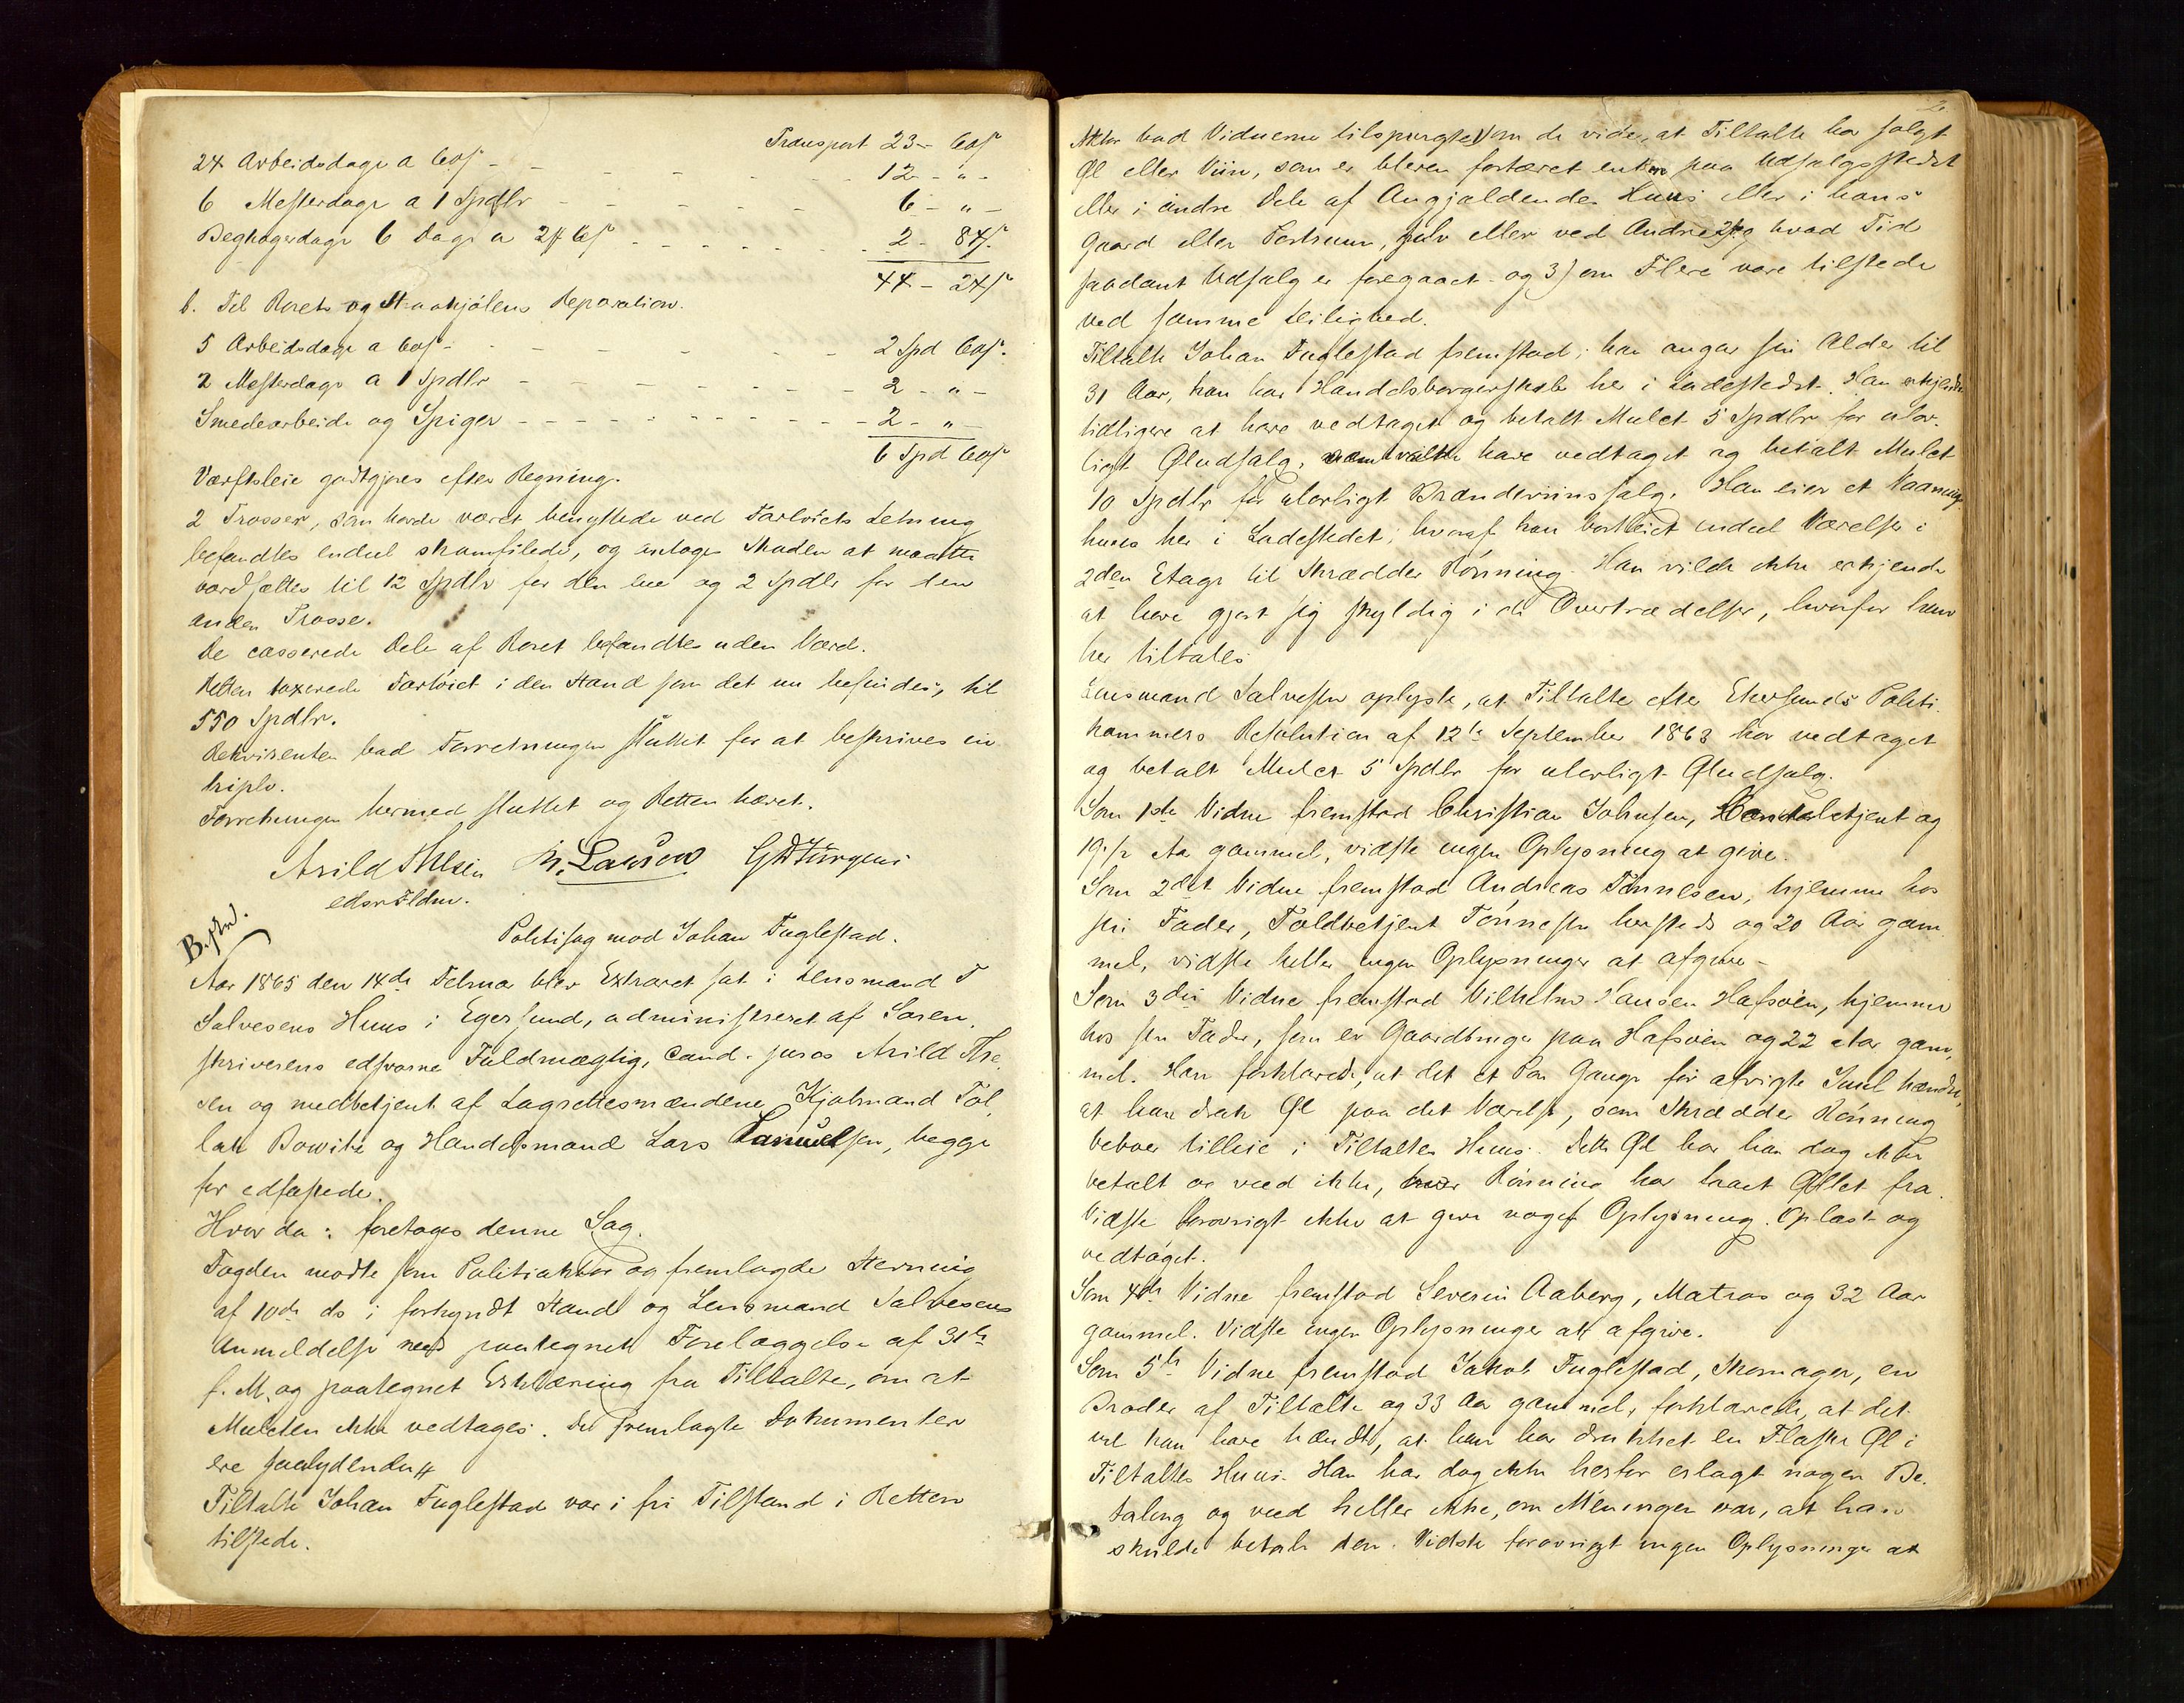 Transport 23 - 60 ß
24 Arbeidsdage a 60 ß - - - - - 12 - " -
6 Mesterdage a 1 Spdlr - - - - - 6 - " -
Begkogerdage 6 Dage a 2 # 6 ß - - - - - 2 - 84 ß
44 - 24 ß
b. Til Rorets og Straakjølens Reparation.
5 Arbeidsdage a 60 ß - - - - - 2 Spd 60 ß.
2 Mesterdage a 1 Spdlr - - - - - 2 - " -
Smedearbeide og Spiger - - - - - 2 - " -
6 Spd 60 ß
Værftsleie godtgjøres efter Regning.
2 Trosser, som havde været benyttede ved Fartøiets Letning
befandtes endeel skamfilede, og antoges Skaden at maatte
værdsættes til 12 Spdlr for den ene og 2 Spdlr for den
anden Trosse.
De casserede Dele af Roret befandtes uden Værd.
Retten taxerede Fartøiet i den Stand som det nu befindes, til
550 Spdlr.
Rekvirenten bad Forretningen sluttet for at beskrives in
triplo.
Forretningen hermed sluttet og Retten hævet.
Arild Thlsen M. Larsen G W Jürgens
edsv Fldm.
B. skr.
Politisag mod Johan Fuglestad.
Aar 1865 den 14de Februar blev Extraret sat i Lensmand T
Salvesens Huus i Egersund, administreret af Soren,
skriverens edsvorne Fuldmægtig, Cand. juris Arild Thr,
sen og medbetjent af Lagrettesmændene Kjøbmand Tol,
lak Bowitz og Handelsmand Lars Samuelsen, begge
før edfæstede.
Hvor da: foretoges denne Sag.
Fogden mødte som Politiaktor og fremlagde Stevning
af 10de ds i forkyndt Stand og Lensmand Salvesens
Anmeldelse med paategnet Forelæggelse af 31te
f. M. og paategnet Erklæring fra Tiltalte, om at
Mulcten ikke vedtages. De fremlagte Dokumenter
ere saalydende #
Tiltalte Johan Fuglestad var i fri Tilstand i Retten
tilstede.
2
Aktor bad Vidnerne tilspurgte 1) om de vide, at Tiltalte har solgt
Øl eller Viin, som er bleven fortæret enten paa Udsalgsstedet
eller i andre Dele af Angjældendes Huus eller i hans
Gaard eller Pakruum, selv eller ved Andre 2) og hvad Tid
saadant Udsalg er foregaaet og 3) om Flere vare tilstede
ved samme Leilighed.
Tiltalte Johan Fuglestad fremstod; han angav sin Alder til
31 Aar, han har Handelsborgerskab her i Ladestedet. Han erkjendte
tidligere at have vedtaget og betalt Mulct 5 Spdlr for ulov-
ligt Øludsalg, samt at have vedtaget og betalt Mulct
10 Spdlr for ulovligt Brændeviinssalg. Han eier et Vaanings
huus her i Ladestedet, hvoraf han bortleiet endeel Værelser i
2den Etage til Skrædder Rønning. Han vilde ikke erkjende
at have gjort sig skyldig i de Overtrædelser, hvorfor han
her tiltales
Lensmand Salvesen oplyste, at Tiltalte efter Ekersunds Politi-
kammers Resolution af 12te September 1863 har vedtaget
og betalt Mulct 5 Spdlr for ulovligt Øludsalg.
Som 1ste Vidne fremstod Christian Johnsen, Handelsbetjent og
19 1/2 Aar gammel, vidste ingen Oplysning at give.
Som 2det Vidne fremstod Andreas Tønnesen, hjemme hos
sin Fader, Toldbetjent Tønnesen hersteds og 20 Aar gam-
mel, vidste heller ingen Oplysninger at afgive -
Som 3die Vidne fremstod Vilhelm Hansen Hafsøen, hjemme
hos sin Fader, som er Gaardbruger paa Hafsøen og 22 Aar gam,
mel. Han forklarede, at det et Par Gange før afvigte Juul hændte,
at han drak Øl paa det Værelse, som Skrædder Rønning
beboer tilleie i Tiltaltes Huus. Dette Øl har han dog ikke
betalt og veed ikke, hvor Rønning har taaet Øllet fra.
Vidste forøvrigt ikke at give noget Oplysning. Oplæst og
vedtaget.
Som 4de Vidne fremstod Severin Aaberg, Matros og 32 Aar
gammel. Vidste ingen Oplysninger at afgive.
Som 5te Vidne fremstod Jakob Fuglestad, Skomager, en
Broder af Tiltalte og 33 Aar gammel, forklarede, at det
vel kan have hændt, at han har drukket en Flaske Øl i
Tiltaltes Huus. Han har dog ikke herfor erlagt nogen Be-
taling og veed heller ikke, om Meningen var, at han
skulde betale den. Vidste forøvrigt ingen Oplysninger at